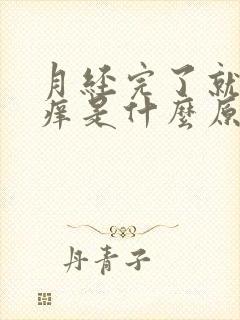 月经完了就
痒是什麼原
丹青子